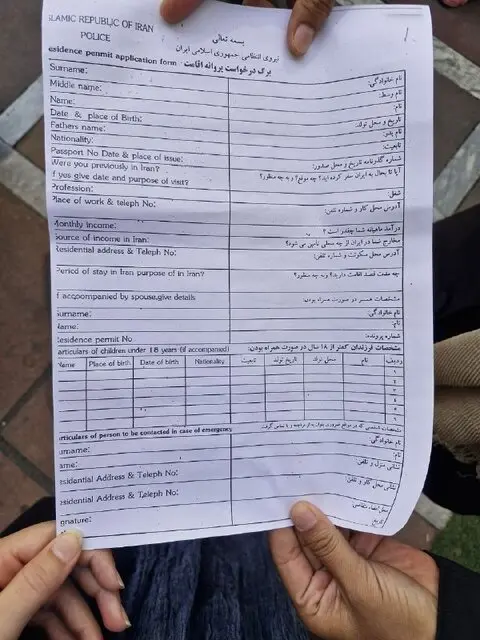 SLAMIC REPUBLIC OF IRAN
POLICE
بسمه تعالی
نیروی انتظامی جمهوری اسلامی ایران
esidence penmit application form برگ درخواست پروانه اقامت
Surname: نام خانوادگی:
Middle name: نام وسط:
Name: نام:
Date & place of Birth: تاریخ و محل تولد:
Fathers name: نام پدر:
Nationality: تابعیت:
Passport No Date & place of issue: شماره گذرنامه تاریخ و محل صدور:
Were you previously in Iran? آیا تا بحال به ایران سفر کرده اید؟ چه موقع؟ و به چه منظور؟
f yus give date and purpose of visit?
Profession: شغل:
Place of work & teleph No: آدرس محل کار و شماره تلفن:
Monthly income: درآمد ماهیانه شما چقدر است ؟
Source of income in Iran: مخارج شما در ایران از چه محلی تامین می شود؟
Residential address & Teleph No: آدرس محل سکونت و شماره تلفن:
Period of stay in Iran purpose of in Iran? چه مدت قصد اقامت دارید؟ و به چه منظور؟
f accomponied by spouse,give details مشخصات همسر در صورت همراه بودن:
urname: نام خانوادگی:
ame: نام:
esidence permit No شماره پرونده:
articulars of children under 18 years (if accompamed) مشخصات فرزندان کمتر از ۱۸ سال در صورت همراه بودن:
Name Place of birth Date of birth Nationality تابعیت تاریخ تولد محل تولد نام ردیف
۱
۲
۳
۴
۵
۶
articulars of person to be contacted in case of emergency
rname: نام خانوادگی:
ame: نام:
esidential Address & Teleph No: نشانی منزل و تلفن:
esidential Address & Teleph No: نشانی محل کار و تلفن:
gnature:
تاریخ